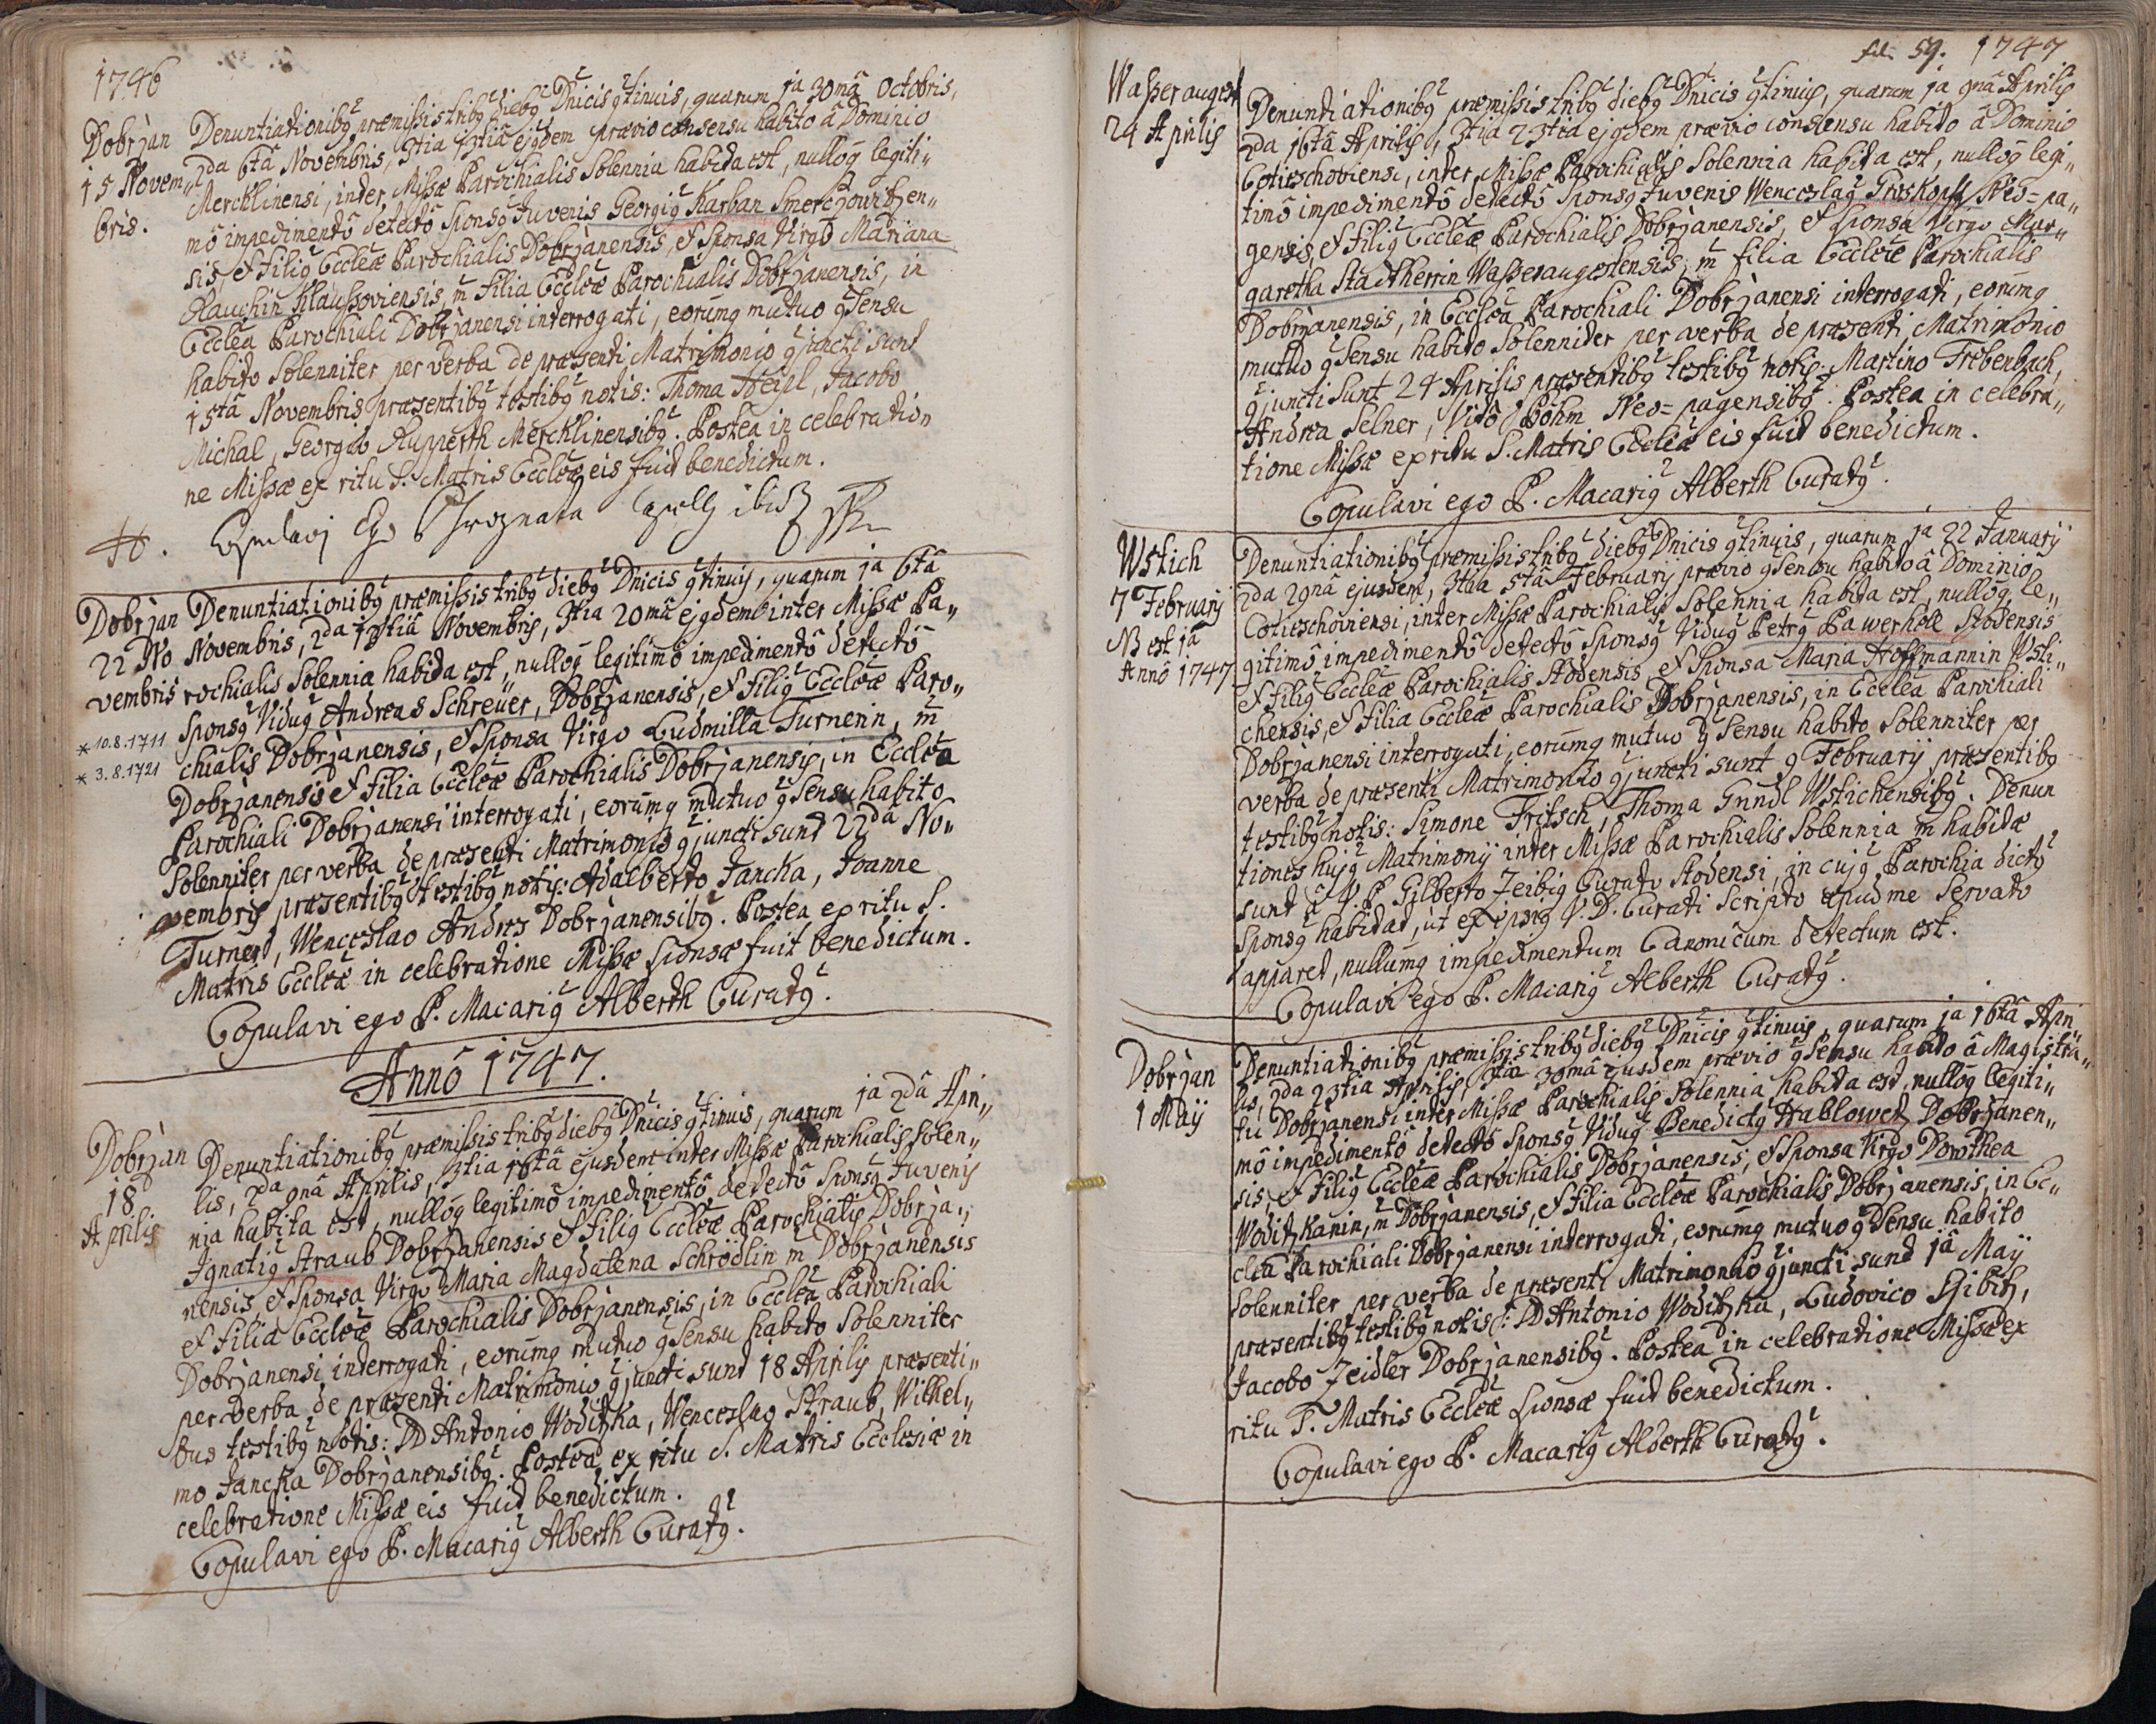 1746
Dobrzan
15 Novem„
bris.
Denuntiationibq praemissis tribq diebq Dnicis qtinuis, quarum ja 30mâ Octobris,
2da 6tâ Novembris, 3tia 13tiâ ejqdem praevio consensu habito â Dominio
Mercklinensi, inter Missae Parochialis Solennia habita est, nulloq legiti„
mô impedimentô detectô Sponsq Juvenis Georgiq Karban Smerczowitzen„
sis, et filiq Eccleae Parochialis Dobrzanensis, et Sponsa Virgo Mariana
Rauchin Klaussoviensis, m filia Eccleae Parochialis Dobrzanensis, in
Ecclea Parochiali Dobrzanensi interrogati, eorumq mutuo qsensu
habito Solenniter per verba de praesenti Matrimonio qjuncti sunt
15tâ Novembris praesentibq testibq notis: Thoma Heigl, Jacobo
Michal, Georgio Rupperth Mercklinensibq. Postea in celebratio
ne Missae ex ritu S. Matris Eccleae eis fuit benedictum.
Copulavi Ego Hroznata
Dobrzan
22 No
vembris
* 10.8.1711
* 3.8.1721
Denuntiationibq praemissis tribq diebq Dnicis qtinuis, quarum ja 6tâ
Novembris, 2da 13tiâ Novembris, 3tia 20mâ ejqdem inter Missae Pa„
rochialis Solennia habita est, nulloq legitimô impedimentô detectô
Sponsq Viduq Andreas Schreüer, Dobrzanensis, et filiq Eccleae Paro„
chialis Dobrzanensis, et Sponsa Virgo Ludmilla Turnerin, m
Dobrzanensis et filia Eccleae Parochialis Dobrzanensis, in Ecclea
Parochiali Dobrzanensi interrogati, eorumq mutuo qsensu habito
Solenniter per verba de praesenti Matrimonio qjuncti sunt 22da No„
vembris praesentibq testibq notis: Adalberto Jancka, Joanne
Turner, Wenceslao Andres Dobrzanensibq. Postea ex ritu S.
Matris Eccleae in celebratione Missae Sponsae fuit benedictum.
Copulavi ego P. Macariq Alberth Curatq.
Annô 1747.
Dobrzan
18
Aprilis
Denuntiationibq praemissis tribq diebq Dnicis qtinuis, quarum ja 2dâ Apri„
lis, 2da 9nâ Aprilis, 3tia 16tâ ejusdem inter Missae Parochialis Solen„
nia habita est, nulloq legitimô impedimentô detectô Sponsq Juvenis
Ignatiq Straub Dobrzanensis et filiq Eccleae Parochialis Dobrza„
nensis, et Sponsa Virgo Maria Magdalena Schrödlin m Dobrzanensis
et filia Eccleae Parochialis Dobrzanensis, in Ecclea Parochiali
Dobrzanensi interrogati, eorumq mutuo qsensu habito Solenniter
per verba de praesenti Matrimonio qjuncti sunt 18 Aprilis praesenti„
bus testibq notis: D Antonio Woditzka, Wenceslao Straub, Wilhel„
mo Jancka Dobrzanensibq. Postea ex ritu S. Matris Ecclesiae in
celebratione Missae eis fuit benedictum.
Copulavi ego P. Macariq Alberth Curatq.
fol. 59. 1747
Wasseraugest
24 Aprilis
Denuntiationibq praemissis tribq diebq Dnicis qtinuis, quarum ja 9nâ Aprilis
2da 16tâ Aprilis, 3tia 23tia ejqdem praevio consensu habito â Dominio
Cotieschoviensi, inter Missae Parochialis Solennia habita est, nulloq legi„
timô impedimentô detectô Sponsq Juvenis Wenceslaq Groskopff Neo=pa„
gensis, et filiq Eccleae Parochialis Dobrzanensis, et Sponsa Virgo Mar„
garetha Stadtherrin Wasseraugestensis, m filia Eccleae Parochialis
Dobrzanensis, in Ecclea Parochiali Dobrzanensi interrogati, eorumq
mutuo qsensu habito Solenniter per verba de praesenti Matrimonio
qjuncti sunt 24 Aprilis praesentibq testibq notis Martino Trebenbach,
Andrea Selner, Vito Böhm Neo=pagensibq. Postea in celebra„
tione Missae ex ritu S. Matris Eccleae eis fuit benedictum.
Copulavi ego P. Macariq Alberth Curatq.
Wstich
7 February
NB est ja
Annô 1747
Denuntiationibq praemissis tribq diebq Dnicis qtinuis, quarum ja 22 January
2da 29nâ ejusdem, 3tia 5tâ February praevio qsensu habito â Dominio
Cotieschoviensi, inter Missae Parochialis Solennia habita est, nulloq le„
gitimô impedimentô detectô Sponsq Viduq Petrq Pawerhöll Stodensis
et filiq Eccleae Parochialis Stodensis, et Sponsa Maria Hoffmannin Wsti„
chensis, et filia Eccleae Parochialis Dobrzanensis, in Ecclea Parochiali
Dobrzanensi interrogati, eorumq mutuo qsensu habito Solenniter per
verba de praesenti Matrimonio qjuncti sunt 9 February praesentibq
testibq notis: Simone Fritsch, Thoma Gnndl Wstichensibq. Denun
tiones hujq Matrimonij inter Missae Parochialis Solennia m habitae
sunt â V. P. Gilberto Zeibig Curato Stodensi, in cujq Parochia dictq
Sponsq habitat, ut ex ipsiq V. D. Curati Scripto apud me Servato
apparet, nullumq impedimentum Canonicum detectum est.
Copulavi ego P. Macariq Alberth Curatq.
Dobrzan
1 Maij
Denuntiationibq praemissis tribq diebq Dnicis qtinuis, quarum ja 16tâ Apri„
lis, 2da 23tia Aprilis, 3tia 30mâ ejusdem praevio qsensu habito â Magistra„
tu Dobrzanensi inter Missae Parochialis Solennia habita est, nulloq legiti„
mô impedimentô detectô Sponsq Viduq Benedictq Hablowetz Dobrzanen„
sis, et filiq Eccleae Parochialis Dobrzanensis, et Sponsa Virgo Dorothea
Woditzkanin, m Dobrzanensis, et filia Eccleae Parochialis Dobrzanensis, in Ec„
clea Parochiali Dobrzanensi interrogati, eorumq mutuo qsensu habito
Solenniter per verba de praesenti Matrimonio qjuncti sunt jâ Maij
praesentibq testibq notis: D Antonio Woditzka, Ludovico Shibitz,
Jacobo Zeidler Dobrzanensibq. Postea in celebratione Missae ex
ritu S. Matris Eccleae Sponsae fuit benedictum.
Copulavi ego P. Macariq Alberth Curatq.